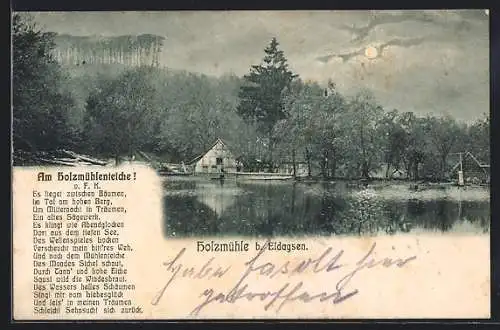 Am Holzmühlenteiche!
v. F. K.
Es lieget zwischen Bäumen,
Im Tal am hohen Berg,
Um Mitternacht in Träumen,
Ein altes Sägewerk.
Es klingt wie Abendglocken
Dort aus dem tiefen See.
Des Wellenspieles Locken
Verscheucht mein bitt'res Weh.
Und nach dem Mühlenteiche
Des Mondes Sichel schaut,
Durch Tann' und hohe Eiche
Saust wild die Windesbraut.
Des Welles Schäumen
Singt mir vom Liebesglück
Und leis' in meinen Träumen
Schleicht Sehnsucht sich zurück.
Holzmühle b. Eldagsen.
Habe fasolt hier
getroffen